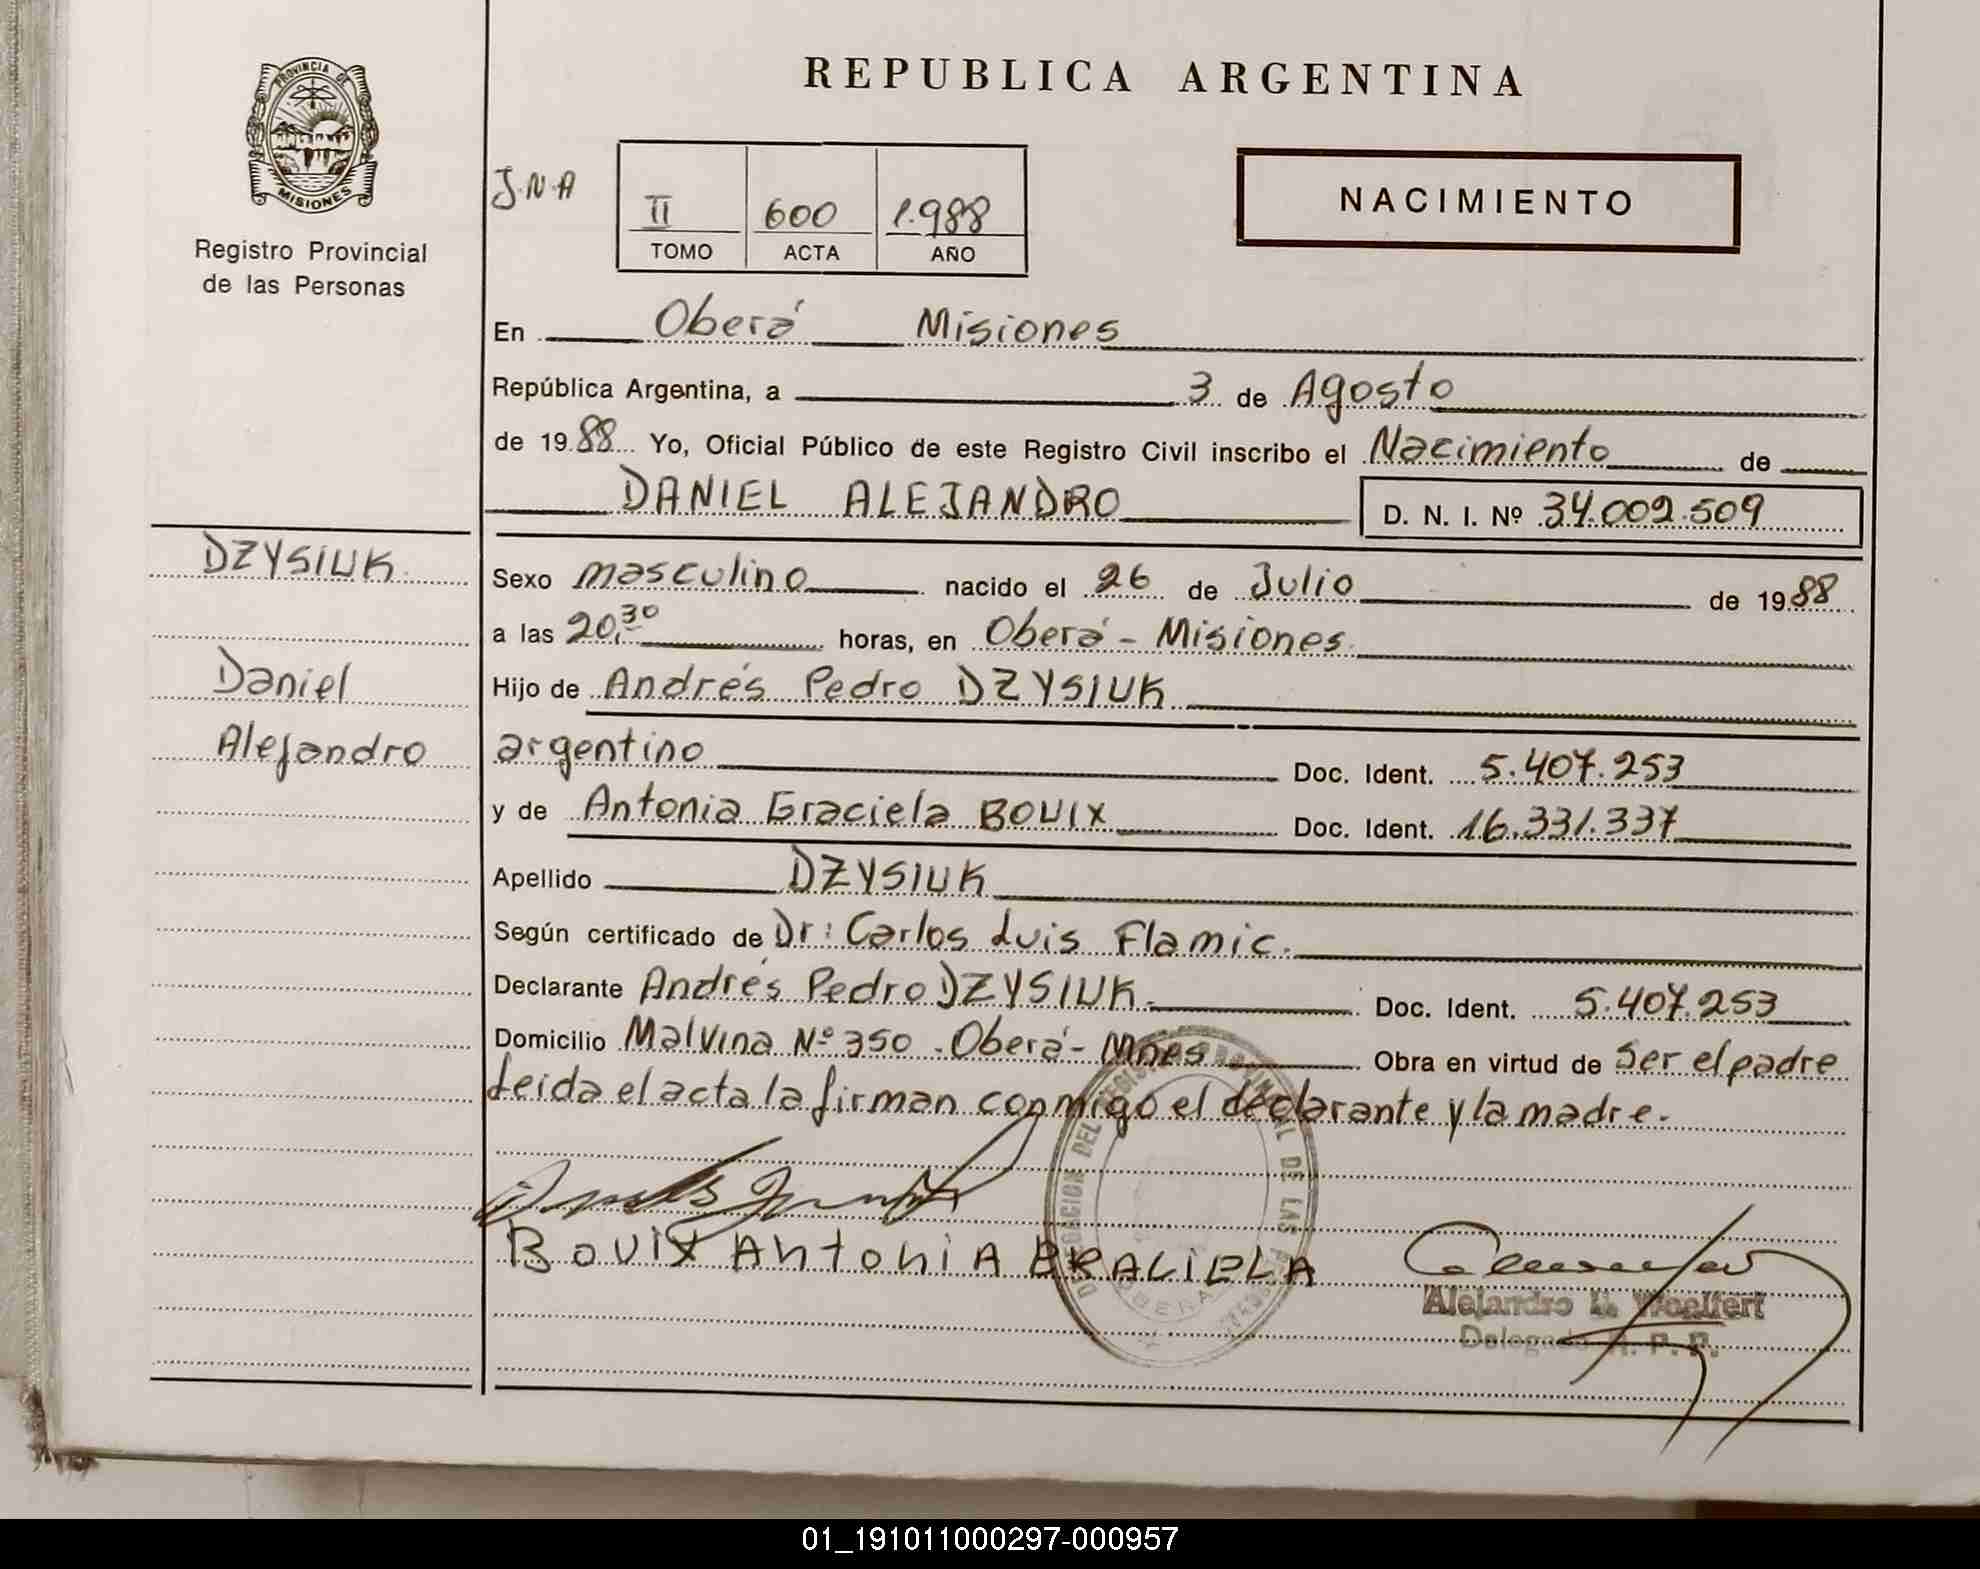 REPUBLICA ARGENTINA
PROVINCIA DE
MISIONES
Registro Provincial
de las Personas
J.N.A
II 600 1.988
TOMO ACTA AÑO
NACIMIENTO
En Oberá Misiones
República Argentina, a 3 de Agosto
de 19 88 Yo, Oficial Público de este Registro Civil inscribo el Nacimiento de
DANIEL ALEJANDRO D. N. I. Nº 34.002.509
DZYSIUK
Daniel
Alejandro
Sexo masculino nacido el 26 de Julio de 19 88
a las 20,30 horas, en Oberá - Misiones
Hijo de Andrés Pedro DZYSIUK
argentino Doc. Ident. 5.407.253
y de Antonia Graciela BOUIX Doc. Ident. 16.331.337
Apellido DZYSIUK
Según certificado de Dr: Carlos Luis Flamic.
Declarante Andrés Pedro DZYSIUK Doc. Ident. 5.407.253
Domicilio Malvina Nº 350 - Oberá - Mnes Obra en virtud de Ser el padre
Leida el acta la firman conmigo el declarante y la madre.
BOUIX ANtONiA GRACiELA
DELEGACION DEL REGISTRO PROVINCIAL DE LAS PERSONAS
OBERA
Alejandro Woelfert
Delegado R. P. P.
01_191011000297-000957